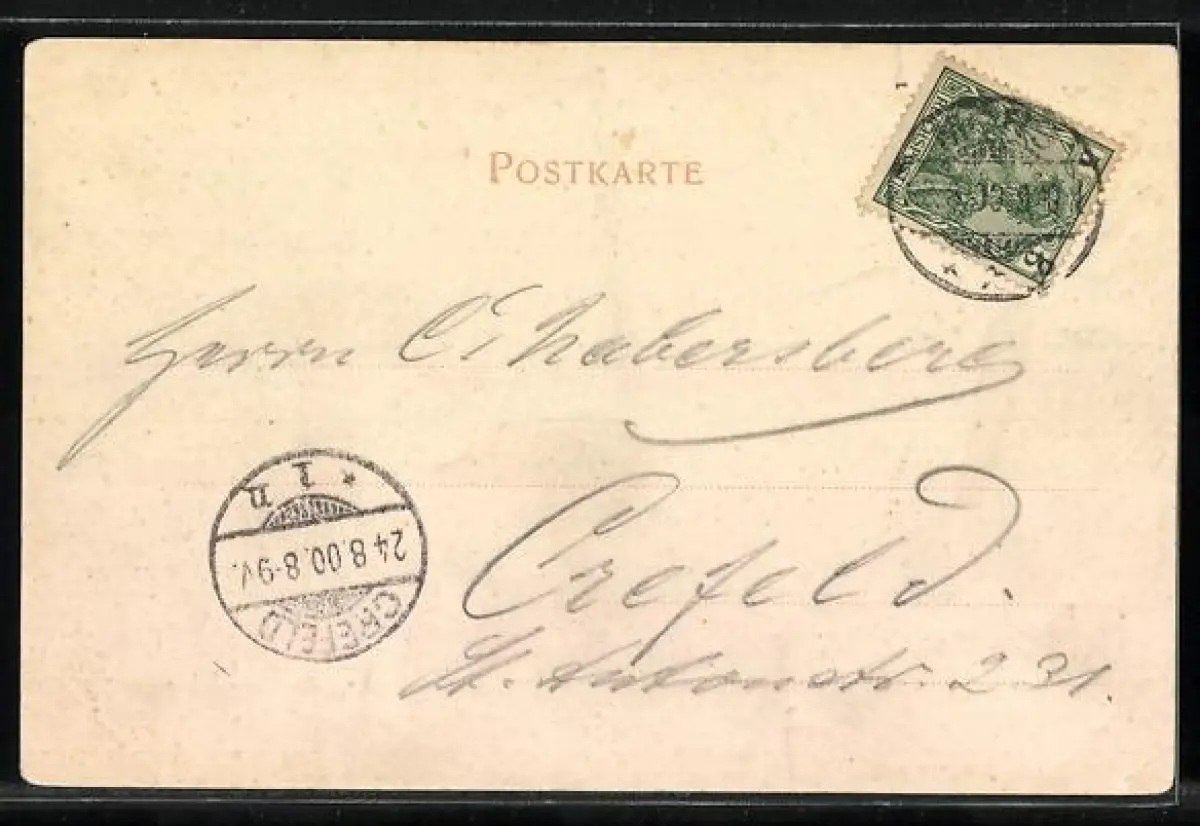 POSTKARTE
Herrn C. Habersberg
Crefeld.
St. Antonstr. 231.
CREFELD
24.8.00.8-9V.
* 1 n